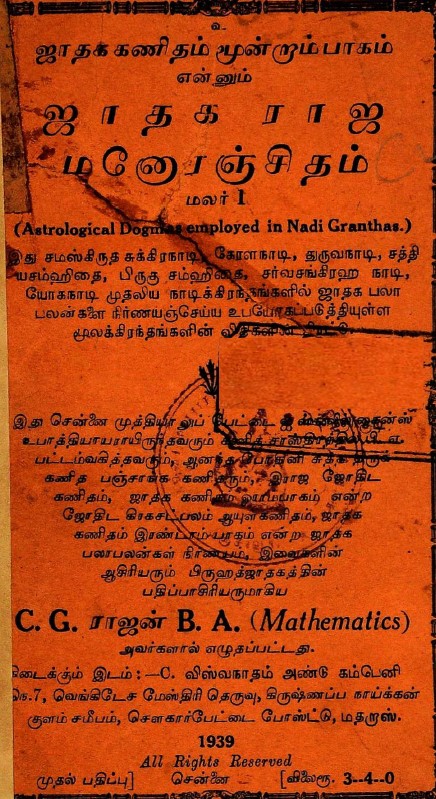 உ
ஜாதககணிதம் மூன்றும்பாகம்
என்னும்
ஜாதக ராஜ
மனோரஞ்சிதம்
மலர் 1
(Astrological Dogmas employed in Nadi Granthas.)
இது சமஸ்கிருத சுக்கிரநாடி, கோளநாடி, துருவநாடி, சத்தி
யசம்ஹிதை, பிருகு சம்ஹிதை, சர்வசங்கிரஹ நாடி,
யோகநாடி முதலிய நாடிக்கிரந்தங்களில் ஜாதக பலா
பலன்களை நிர்ணயஞ்செய்ய உபயோகப்படுத்தியுள்ள
மூலக்கிரந்தங்களின் விதிகளின்
இது சென்னை முத்தியாலுப் பேட்டை
உபாத்தியாயராயிருந்தவரும் பி. ஏ.
பட்டம்வகித்தவரும், ஆனந்த
கணித பஞ்சாங்க கணிதரும், இராஜ ஜோதிட
கணிதம், ஜாதக கணிதம் என்ற
ஜோதிட கிரகசட்பலம் ஆயுள்கணிதம், ஜாதக
கணிதம் இரண்டாம்பாகம் என்ற ஜாதக
பலாபலன்கள் நிர்ணயம், இவைகளின்
ஆசிரியரும் பிருஹத்ஜாதகத்தின்
பதிப்பாசிரியருமாகிய
C. G. ராஜன் B. A. (Mathematics)
அவர்களால் எழுதப்பட்டது.
கிடைக்கும் இடம் :—C. விஸ்வநாதம் அண்டு கம்பெனி
நெ.7, வெங்கிடேச மேஸ்திரி தெருவு, கிருஷ்ணப்ப நாய்க்கன்
குளம் சமீபம், சௌகார்பேட்டை போஸ்ட்டு, மதறாஸ்.
1939
All Rights Reserved
முதல் பதிப்பு] சென்னை [விலைரூ. 3-4-0